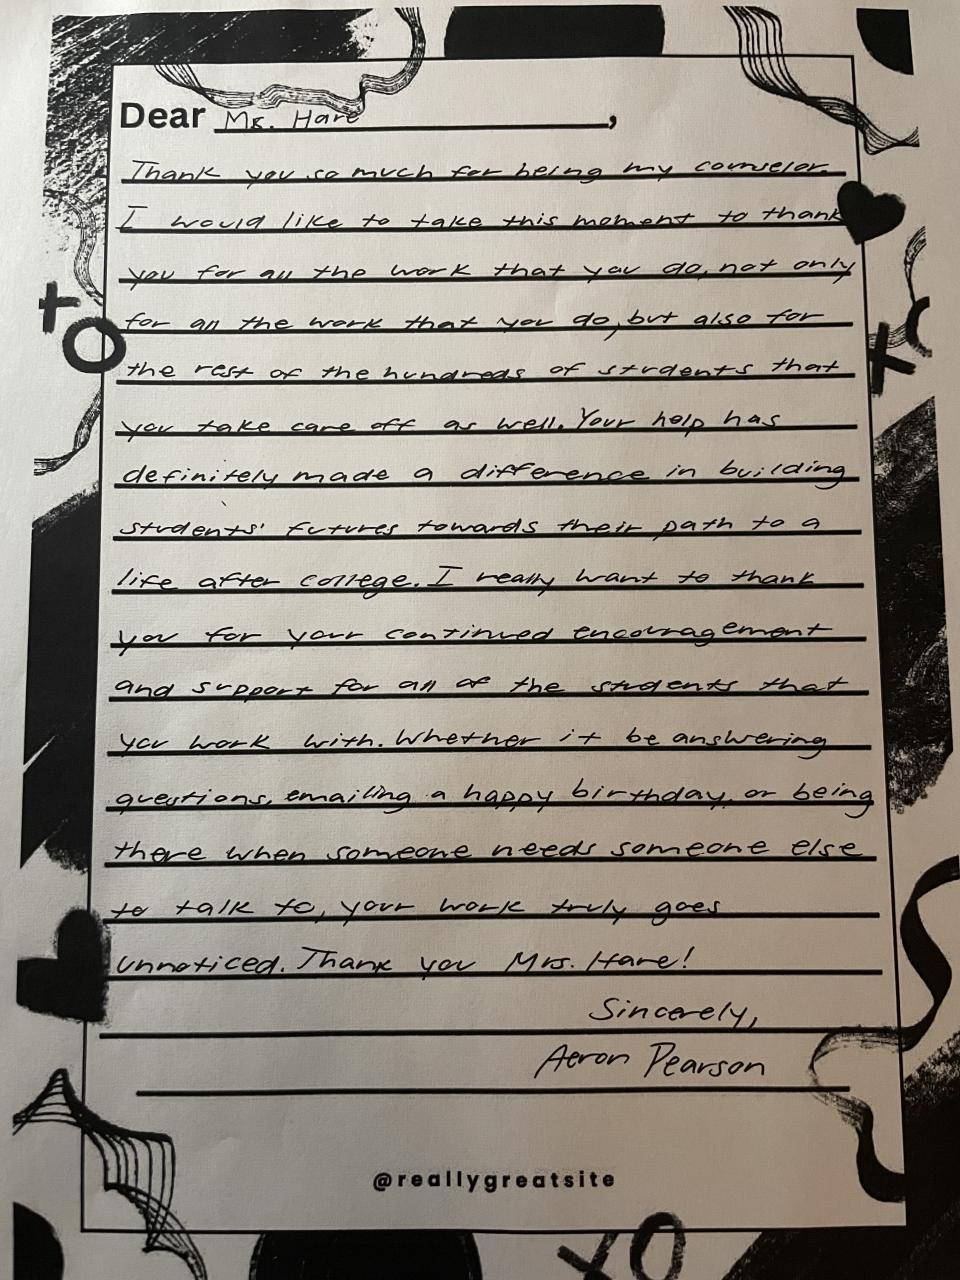 Dear Ms. Hare,
Thank you so much for being my counselor.
I would like to take this moment to thank
you for all the work that you do, not only
for all the work that you do, but also for
the rest of the hundreds of students that
you take care off as well. Your help has
definitely made a difference in building
students' futures towards their path to a
life after college. I really want to thank
you for your continued encouragement
and support for all of the students that
you work with. Whether it be answering
questions, emailing a happy birthday, or being
there when someone needs someone else
to talk to, your work truly goes
unnoticed. Thank you Mrs. Hare!
Sincerely,
Aeron Pearson
@reallygreatsite